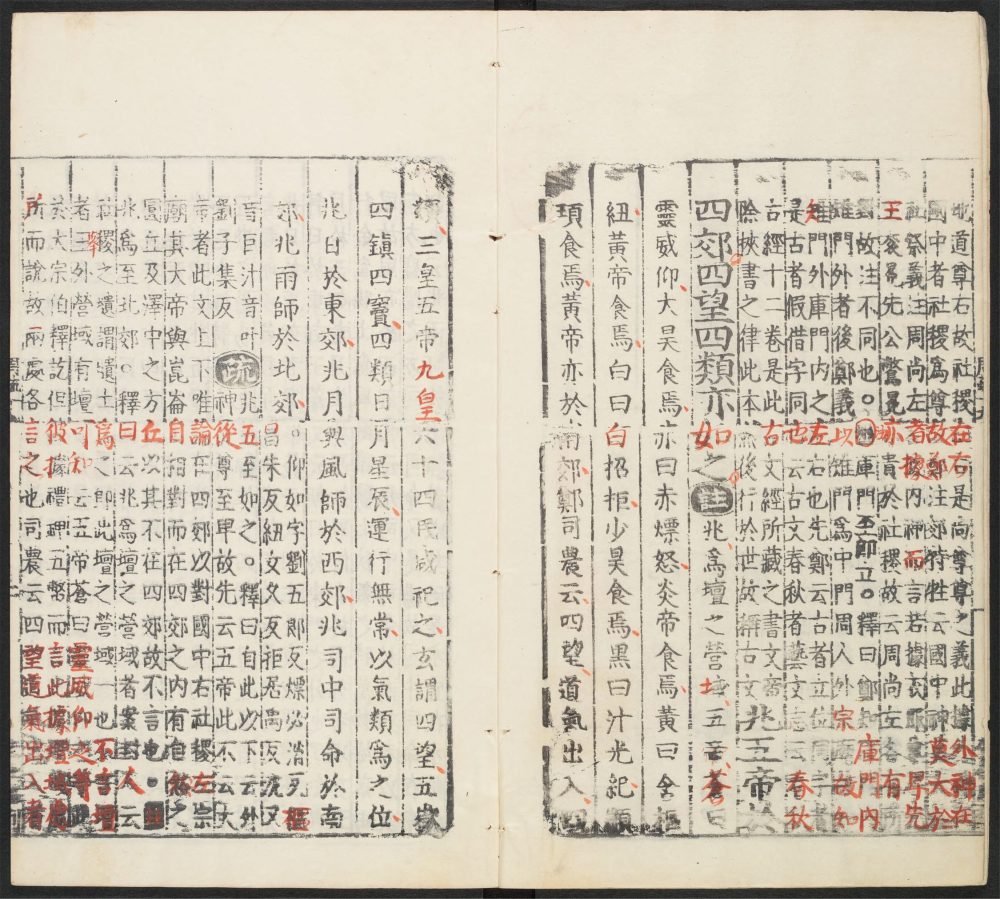 地道尊右故社稷在右是尚尊尊之義此據外神在
國中者社稷爲尊故鄭注郊特牲云國中神莫大於
社祭義注周尚左者據內神而言若據衣服尊卑先
王袞冕先公鷩冕亦貴於社稷故云周尚左各有
對故注不同也。注庫門至卽立。釋曰鄭知庫門內
雉門外者後鄭義以雉門爲中門周人外宗廟故知
雉門外庫門內之左右也先鄭云古者立位同字者
是古者假借字同也云古文春秋者藝文志云春秋
古經十二卷是此古文經所藏之書文帝
除挾書之律此本然後行於世故稱古文
兆五帝於
四郊四望四類亦如之注兆爲壇之營域五帝蒼曰
靈威仰大昊食焉赤曰赤熛怒炎帝食焉黃曰含樞
紐黃帝食焉白曰白招拒少昊食焉黑曰汁光紀顓
頊食焉黃帝亦於南郊鄭司農云四望道氣出入四
類三皇五帝九皇六十四民咸祀之玄謂四望五嶽
四鎮四竇四類日月星辰運行無常以氣類爲之位
兆日於東郊兆月與風師於西郊兆司中司命於南
郊兆雨師於北郊
。仰如字劉五郎反熛必消反樞
昌朱反紐女久反拒居禹反沈又
音巨汁音叶
劉子集反
疏
兆五至如之。釋曰自此以下云外
神從尊至卑故先云五帝此不云大
帝者此文上下唯論在四郊以對國中右社稷左宗
廟其大帝與崑崙自相對而在四郊之內有自然之
圜丘及澤中之方丘以其不在四郊故不言也。注
兆爲至北郊。釋曰云兆爲壇之營域者案封人云
社稷之壝謂壝土爲之卽此壇之營域一也不言壇
者舉外營域有壇可知云五帝蒼曰靈威仰之等此
於大宗伯釋訖但彼據禮神玉幣而言此據壇域處
所而說故兩處各言之也司農云四望道氣出入者